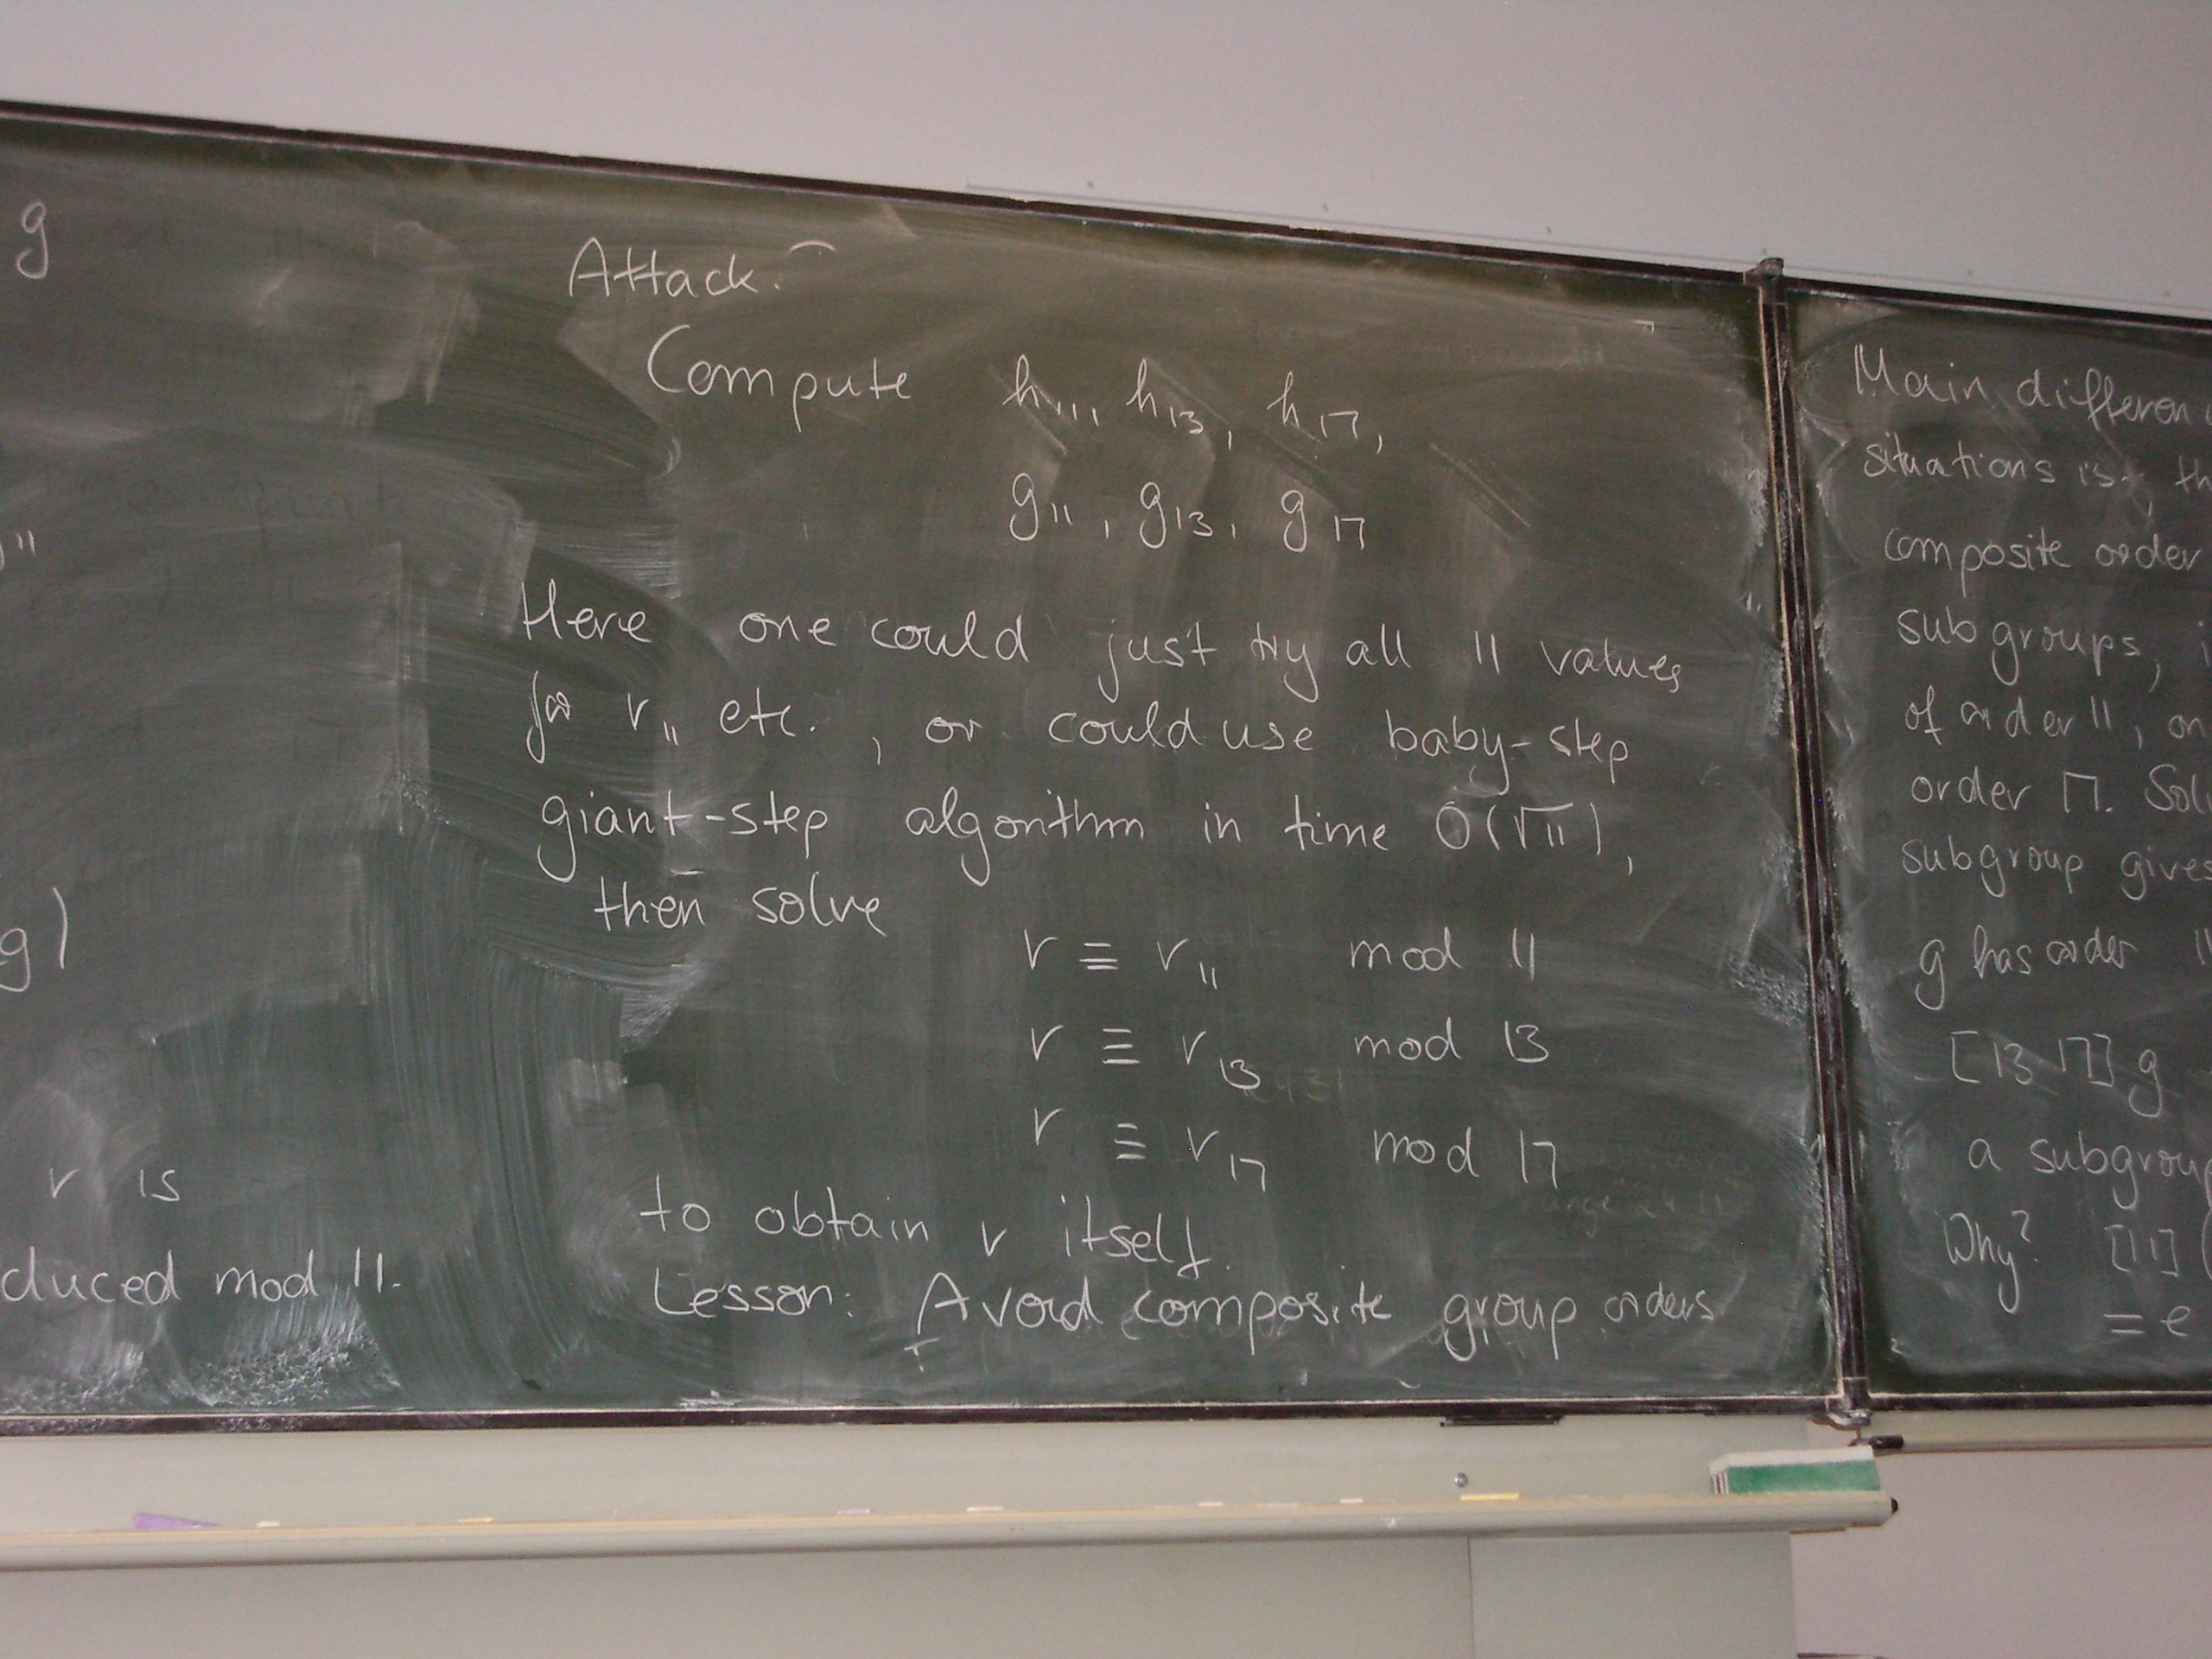 g
"
g)
r is
duced mod 11.
Attack:
Compute h₁₁, h₁₃, h₁₇,
g₁₁, g₁₃, g₁₇
Here one could just try all 11 values
for r₁₁ etc., or could use baby-step
giant-step algorithm in time O(√11),
then solve
r ≡ r₁₁ mod 11
r ≡ r₁₃ mod 13
r ≡ r₁₇ mod 17
to obtain r itself.
Lesson: Avoid composite group orders
Main differen
situations is th
composite order
subgroups, i
of order 11, on
order 17. Sol
subgroup gives
g has order 11
[13 17] g
a subgroup
Why? [11] (
= e